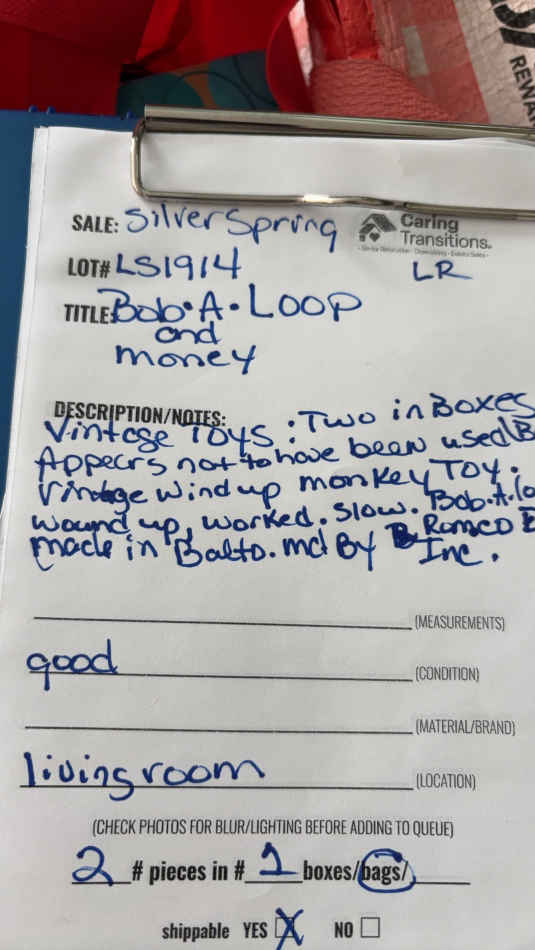 REWAR
SALE: Silver Spring
Caring
Transitions.
- Senior Relocation - Downsizing - Estate Sales -
LOT# LS1914
LR
TITLE: Bob•A•Loop
and
money
DESCRIPTION/NOTES:
Vintage Toys : Two in Boxes
Appears not to have been used B
Vintage wind up monkey Toy.
wound up, worked. Slow. Bob.A.lo
made in Balto. md By Romco E
Inc.
(MEASUREMENTS)
good (CONDITION)
(MATERIAL/BRAND)
living room (LOCATION)
(CHECK PHOTOS FOR BLUR/LIGHTING BEFORE ADDING TO QUEUE)
2 # pieces in # 1 boxes/bags/
shippable YES X NO